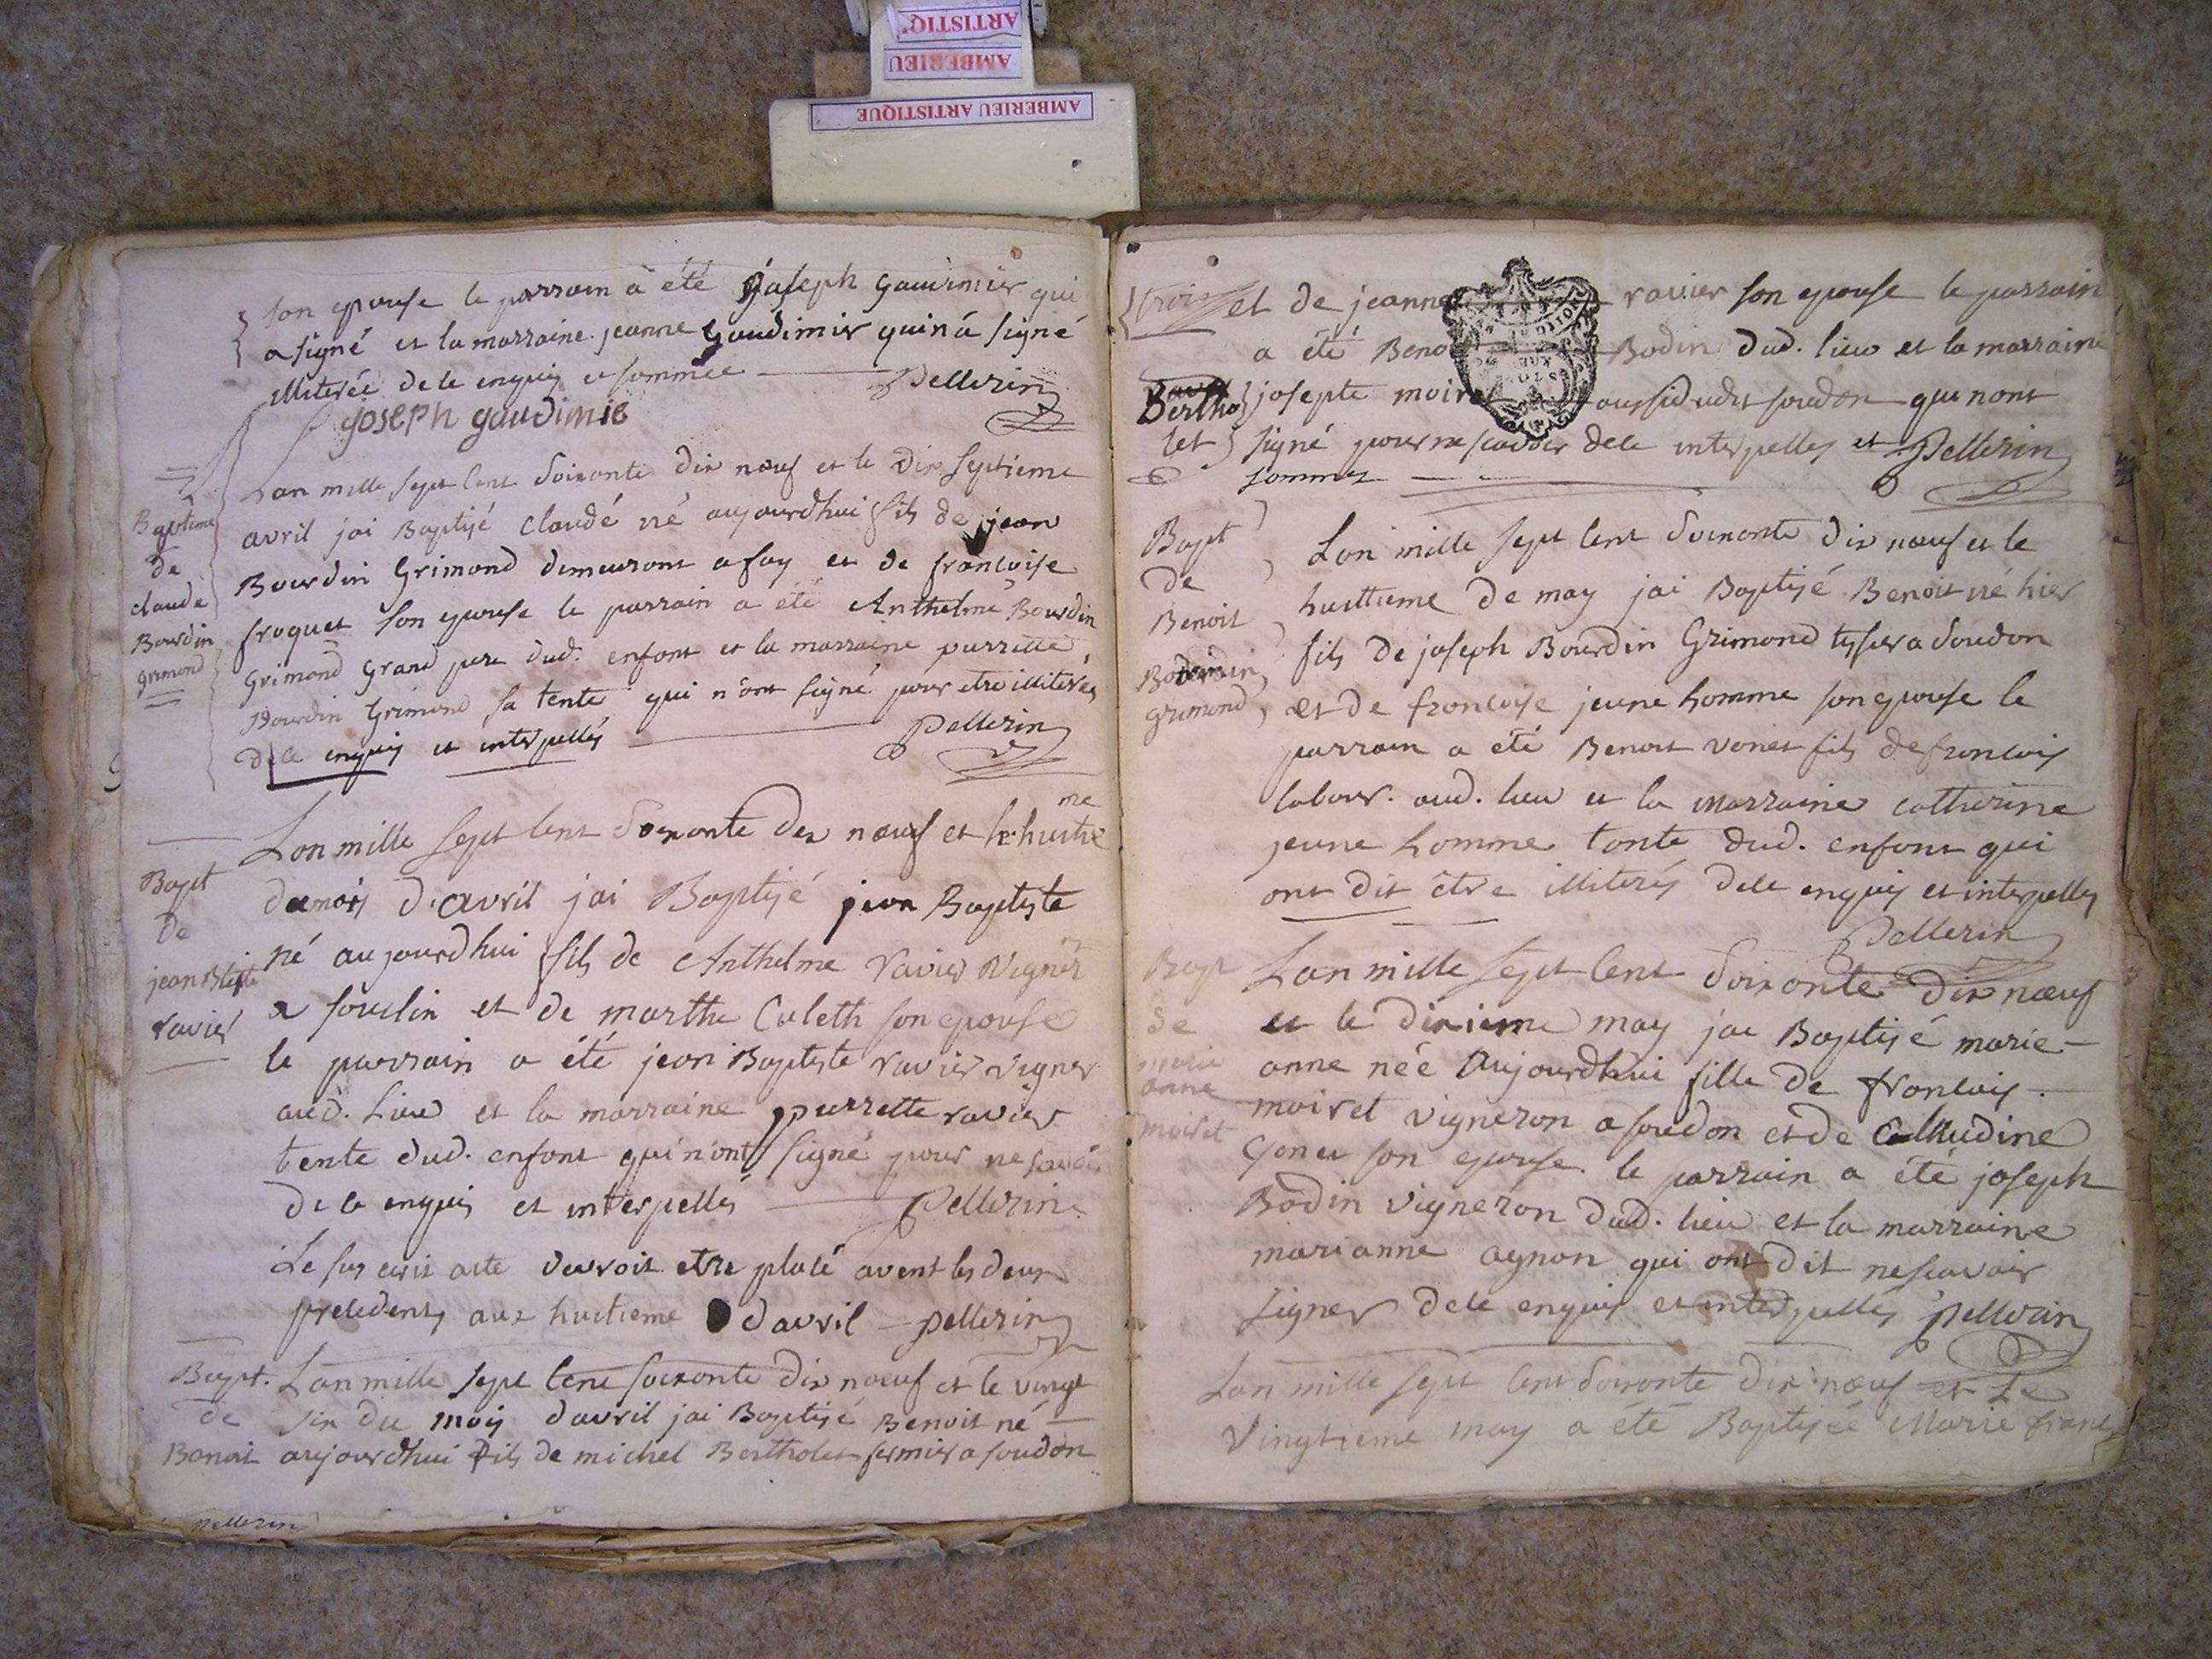 ARTISTIQ'
AMBERIEU
AMBERIEU ARTISTIQUE
son epouse le parrain a été Joseph Gaudimier qui
a signé et la marraine jeanne Gaudimier qui n'a signé
illiterée de ce enquis et sommée Pellerin
joseph gaudimie
Lan mille sept cent soixante dix nœuf et le dix septieme
Bapteme
de
claude
Bourdin
grimond
avril jai Baptisé claudé né aujourdhui fils de jean
Bourdin Grimond demeurant a fay et de francoise
froquet son epouse le parrain a été Anthelme Bourdin
Grimond Grand pere dud. enfant et la marraine purrette
Bourdin Grimond sa tente qui n'ont signé pour etre illiterés
de ce enquis et interpellés Pellerin
Lan mille sept cent soixante dix nœuf et le huitie me
Bapt
de
jean Btiste
ravier
du mois d'avril jai Baptisé jean Baptiste
né aujourdhui fils de Anthelme ravier vigner
a souclin et de marthe Culeth son epouse
le parrain a été jean Baptiste ravier vigner
aud. lieu et la marraine purrette ravier
tente dud. enfant qui n'ont signé pour ne
de ce enquis et interpellés Pellerin
Le sus ecrit acte devroit etre placé avent les deux
precedents aux huitieme d'avril pellerin
Bapt.
de
Benoit
Lan mille sept cent soixante dix nœuf et le vingt
six du mois davril jai Baptisé Benoit né
aujourdhui fils de michel Bertholet fermier a soudon
pellerin
et de jeanne ravier son epouse le parrain
a été Benoi Bodin dud. lieu et la marraine
Bertho
let
josepte moiret aussi dudit soudon qui nont
signé pour ne scavoir de ce interpellés et Pellerin
sommes
Bapt
de
Benoit
Bourdin
grimond
Lan mille sept cent soixante dix nœuf et le
huittieme de may jai Baptisé Benoit né hier
fils de joseph Bourdin Grimond tissier a soudon
et de francoise jeune homme son epouse le
parrain a été Benoit venet fils de francois
labour. aud. lieu et la marraine catherine
jeune homme tante dud. enfant qui
ont dit être illiterés de ce enquis et interpellés
Pellerin
Bapt
de
marie
anne
moiret
Lan mille sept cent soixante dix nœuf
et le dixieme may jai Baptisé marie
anne née aujourdhui fille de francois
moiret vigneron a soudon et de Claudine
son epouse le parrain a été joseph
Bodin vigneron dud. lieu et la marraine
marianne agnon qui ont dit ne scavoir
signer de ce enquis et interpellés pellerin
Lan mille sept cent soixante dix nœuf et le
vingtieme may a été Baptisée Marie franc